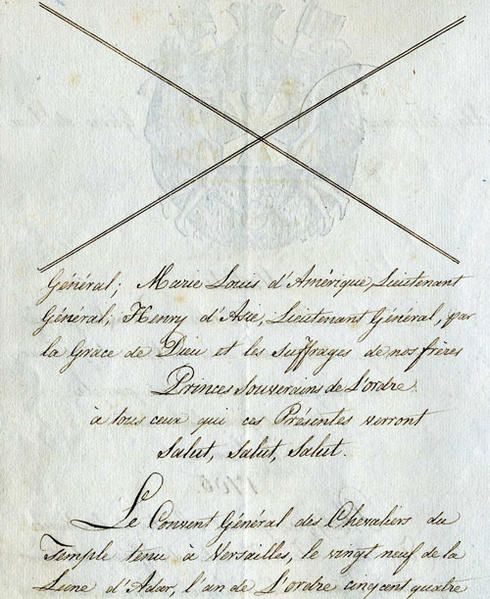 Général; Marie Louis d'Amérique, Lieutenant
Général; Henry d'Asie, Lieutenant Général, par
la Grace de Dieu et les suffrages de nos frères
Princes Souverains de L'ordre.
à tous ceux qui ces Présentes verront
Salut, Salut, Salut.
Le Convent Général des Chevaliers du
Temple tenu à Versailles, le vingt neuf de la
Lune d'Adar, l'an de L'ordre cinq cent quatre